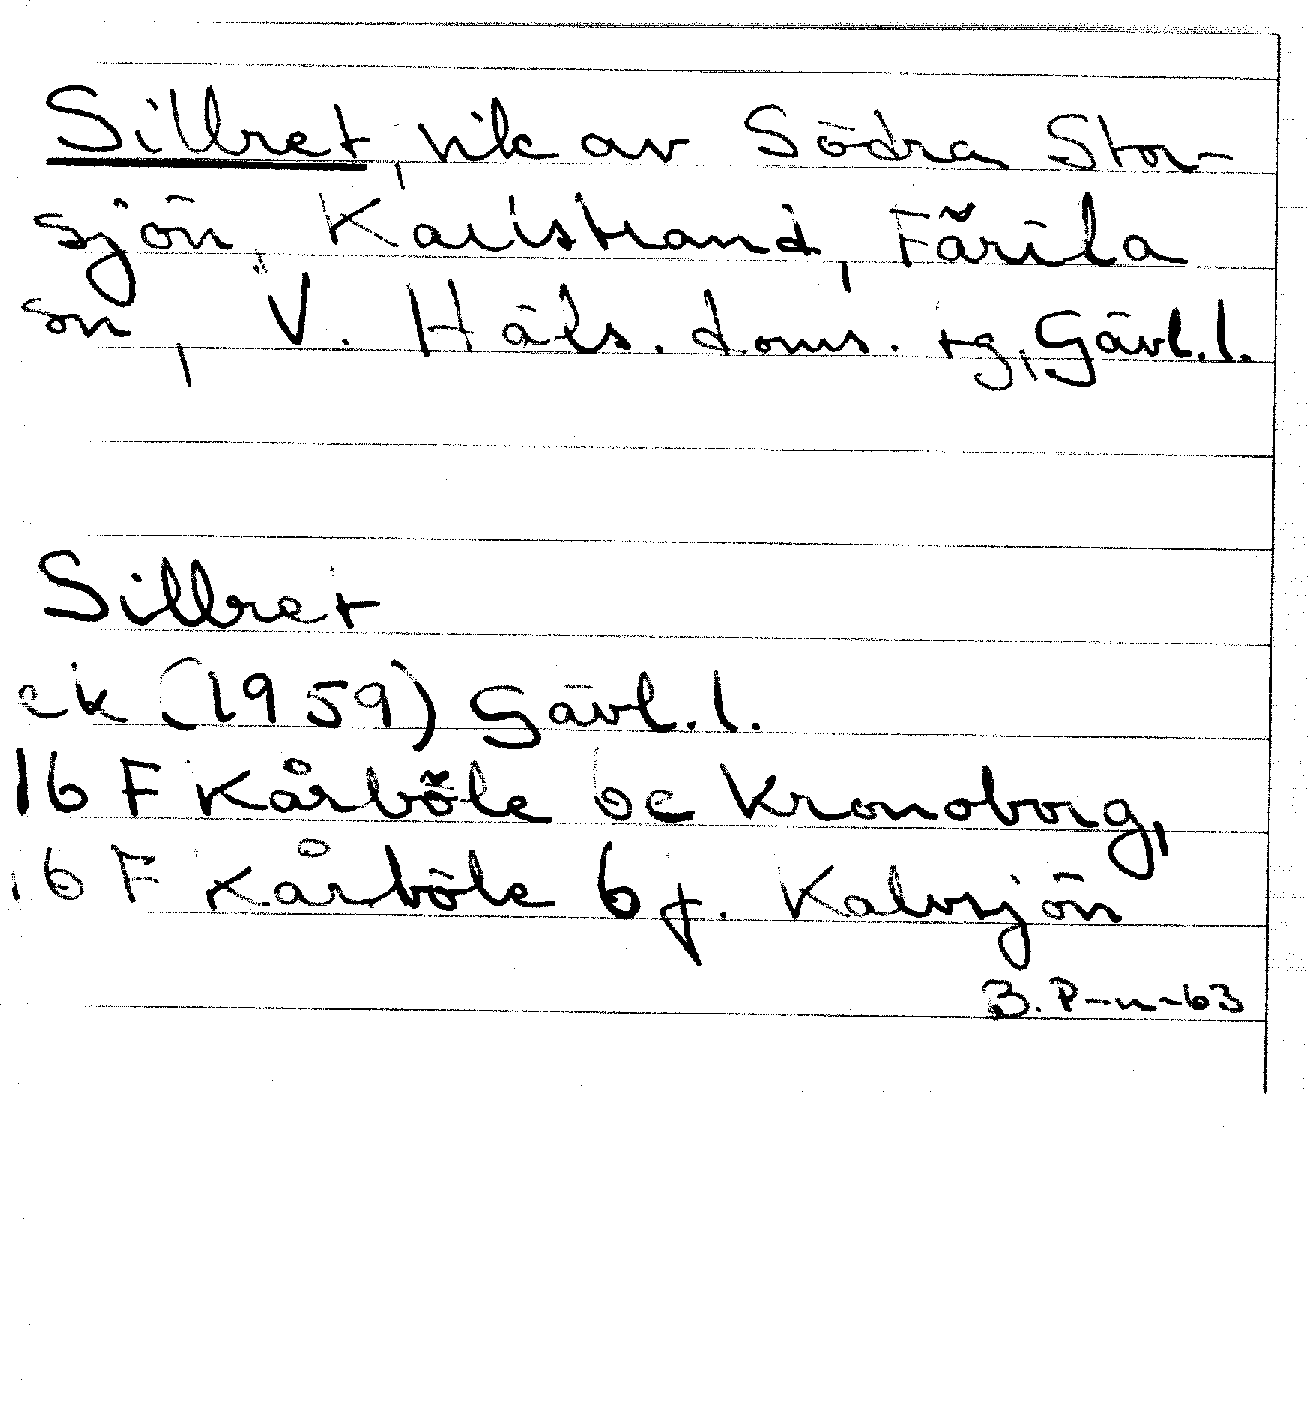 Sillret, vik av Södra Stor-
sjön, Karlstrand, Färila
sn, V. Häls. doms. tg, Gävl.l.
Sillret
ek (1959) Gävl.l.
16 F Kårböle 6e Kronoborg,
16 F Kårböle 6f. Kalvsjön
B. P-n-63